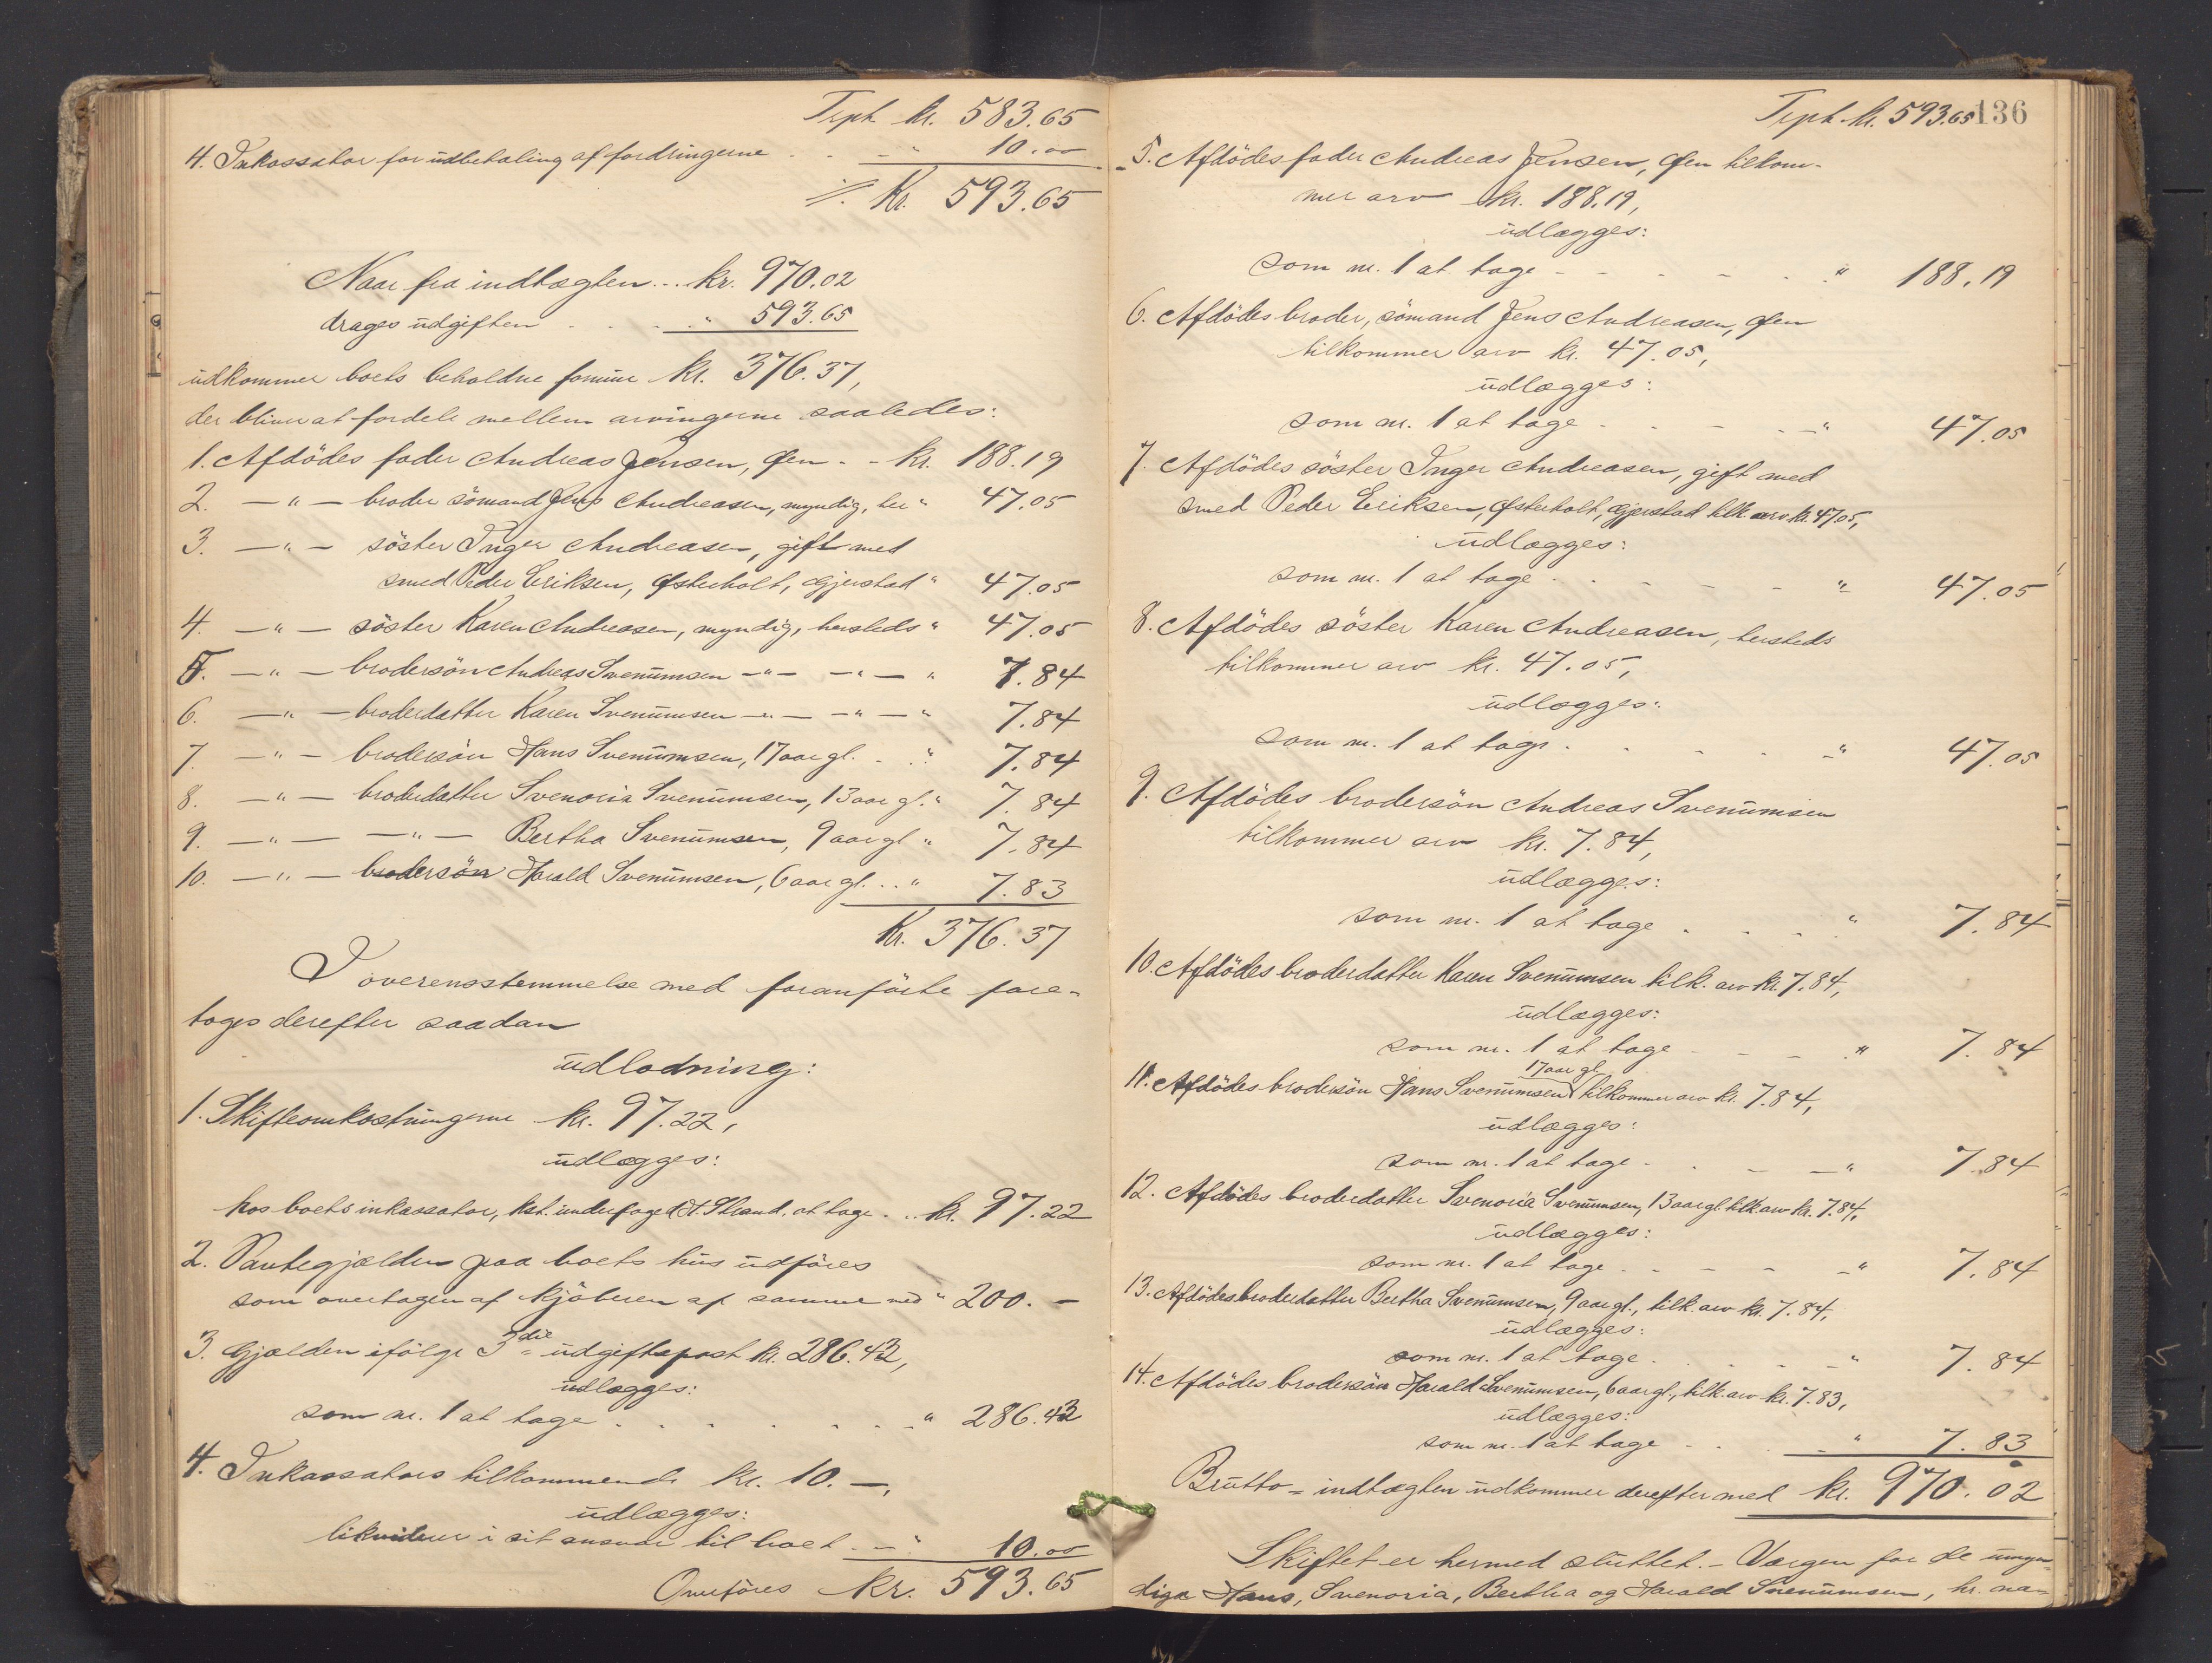 Trpt. kr. 583.65
4. Inkassator for udbetaling af fordringerne . . . — " 10.00
./. Kr. 593.65
Naar fra indtægten . . . kr. 970.02
drages udgiften . . . . " 593.65
udkommer boets beholdne formue kr. 376.37,
der bliver at fordele mellem arvingerne saaledes:
1. Afdödes fader Andreas Jensen, Øen . - kr. 188.19
2. — " — broder sömand Jens Andreasen, myndig, her " 47.05
3. — " — söster Inger Andreasen, gift med
smed Peder Eriksen, Østerholt, Gjerstad " 47.05
4. — " — söster Karen Andreasen, myndig, hersteds " 47.05
5. — " — brodersön Andreas Svenumsen — " — — " — " 7.84
6. — " — broderdatter Karen Svenumsen — " — — " — " 7.84
7. — " — brodersön Hans Svenumsen, 17 aar gl. . . " 7.84
8. — " — broderdatter Svenoria Svenumsen, 13 aar gl. " 7.84
9. — " — — " — Bertha Svenumsen, 9 aar gl " 7.84
10. — " — brodersön Harald Svenumsen, 6 aar gl. . . " 7.83
Kr. 376.37
I overensstemmelse med foranförte fore-
toges derefter saadan
udlodning:
1. Skifteomkostningerne kr. 97.22,
udlægges:
hos boets inkassator, kst. underfoged A. Strand, at tage . . kr. 97.22
2. Pantegjælden paa boets hus udföres
som overtagen af kjöberen af samme med " 200. —
3. Gjælden ifölge 3die udgiftspost kr. 286.43,
udlægges:
som nr. 1 at tage . . . . . . . " 286.43
4. Inkassators tilkommende kr. 10. —,
udlægges:
likviderer i sit ansvar til boet . — " 10.00
Overföres kr. 593.65
Trpt. kr. 593.65 136
5. Afdödes fader Andreas Jensen, Øen tilkom-
mer arv kr. 188.19,
udlægges:
som nr. 1 at tage - - . - . " 188.19
6. Afdödes broder, sömand Jens Andreasen, Øen
tilkommer arv kr. 47.05,
udlægges:
som nr. 1 at tage . . - . — " 47.05
7. Afdödes söster Inger Andreasen, gift med
smed Peder Eriksen, Østerholt, Gjerstad tilk. arv kr. 47.05,
udlægges:
som nr. 1 at tage . . - - - " 47.05
8. Afdödes söster Karen Andreasen, hersteds
tilkommer arv kr. 47.05,
udlægges:
som nr. 1 at tage . . . . — " 47.05
9. Afdödes brodersön Andreas Svenumsen
tilkommer arv kr. 7.84,
udlægges:
som nr. 1 at tage . . . . " 7.84
10. Afdödes broderdatter Karen Svenumsen tilk. arv kr. 7.84,
udlægges:
som nr. 1 at tage - - — . " 7.84
17 aar gl.
11. Afdödes brodersön Hans Svenumsen tilkommer arv kr. 7.84,
udlægges:
som nr. 1 at tage . . — — " 7.84
12. Afdödes broderdatter Svenoria Svenumsen, 13 aar gl. tilk. arv kr. 7.84,
udlægges:
som nr. 1 at tage . - - - — " 7.84
13. Afdödes broderdatter Bertha Svenumsen, 9 aar gl., tilk. arv kr. 7.84,
udlægges:
som nr. 1 at tage . . - - — " 7.84
14. Afdödes brodersön Harald Svenumsen, 6 aar gl., tilk. arv kr. 7.83,
udlægges:
som nr. 1 at tage . . . — " 7.83
Brutto-indtægten udkommer derefter med kr. 970.02
Skiftet er hermed sluttet. — Værgen for de umyn-
dige Hans, Svenoria, Bertha og Harald Svenumsen, hr. na-